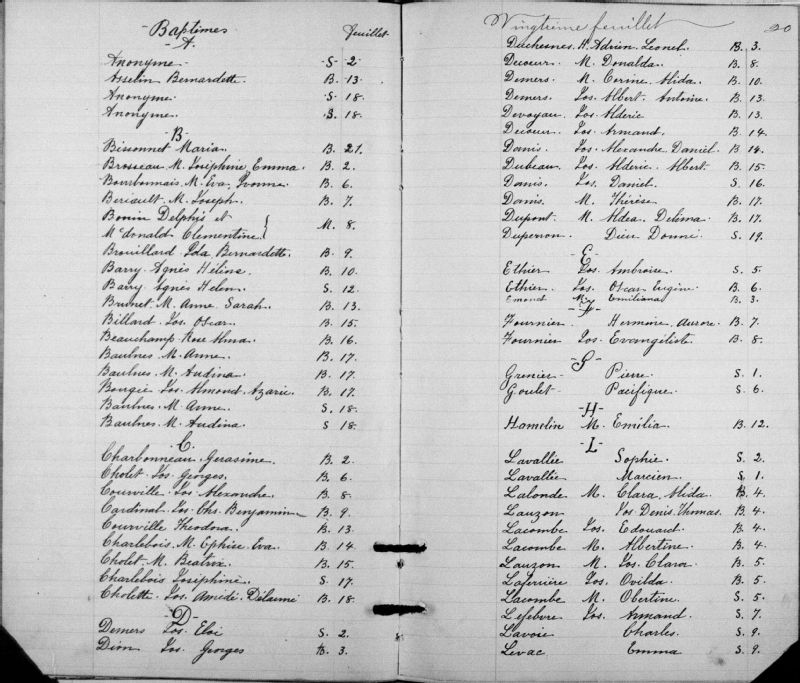 Baptêmes feuillet
-A-
Anonyme S. 2
Asselin Bernardette. B. 13.
Anonyme. S. 18.
Anonyme. S. 18.
-B-
Bissonnet Maria. B. 21.
Brosseau M. Joséphine Emma. B. 2.
Bourbonnais M. Eva Yvonne B. 6.
Beriault M. Joseph. B. 7.
Bonin Delphis et
McDonald Clementine } M. 8.
Brouillard Ida Bernardette. B. 9.
Barry Agnès Hélène. B. 10.
Barry Agnès Helen. S. 12.
Brunet M. Anne Sarah. B. 13.
Billard Jos. Oscar. B. 15.
Beauchamp Rose Alma. B. 16.
Baulnes M. Anne. B. 17.
Baulnes M. Audina. B. 17.
Bougie Jos. Almond Azarie. B. 17.
Baulnes M. Anne. S. 18.
Baulnes M. Audina. S 18.
C.
Charbonneau Gerasime. B. 2.
Cholet Jos. Georges. B. 6.
Courville Jos. Alexandre. B. 8.
Cardinal Jos. Chs. Benjamin B. 9.
Courville Theodora. B. 13.
Charlebois M. Ephise Eva. B. 14.
Cholet M. Beatrix. B. 15.
Charlebois Joséphine S. 17.
Cholette Jos. Amédé B. 18.
-D-
Demers Jos. Eloi S. 2.
Dion Jos. Georges B. 3.
Vingtième feuillet 20
Duchesnes H. Adrien Leonel. B. 3.
Decoeur M. Donalda. B. 8.
Demers M. Corine Alida. B. 10.
Demers. Jos. Albert Antoine. B. 13.
Devoyau. Jos. Alderic B. 13.
Decoeur Jos. Armand. B. 14.
Danis. Jos. Alexandre Daniel. B. 14.
Dubeau. Jos. Alderic Albert. B. 15.
Danis. Jos. Daniel. S. 16.
Danis. M. Thérèse B. 17.
Dupont M. Aldea Delima B. 17.
Duperron Dieu Donné S. 19.
E
Ethier Jos. Ambroise. S. 5.
Ethier. Jos. Oscar Eugène. B. 6.
Emond M. Emiliana B. 3.
-F-
Fournier Hermine Aurore. B. 7.
Fournier Jos. Evangeliste. B. 8.
-G-
Grenier Pierre. S. 1.
Goulet Pacifique. S. 6.
-H-
Hamelin M. Emilia. B. 12.
-L-
Lavallée Sophie. S. 2.
Lavallée Marcien. S 1.
Lalonde M. Clara Alida B. 4.
Lauzon Jos. Denis Thomas. B. 4.
Lacombe Jos. Edouard B. 4.
Lacombe M. Albertine. B. 4.
Lauzon M. Jos. Clara B. 5.
Laferrière Jos. Ovilda. B. 5.
Lacombe M. Obertine. S. 5.
Lefebvre Jos. Armand. S. 7.
Lavoie Charles. S. 9.
Levac Emma S. 9.